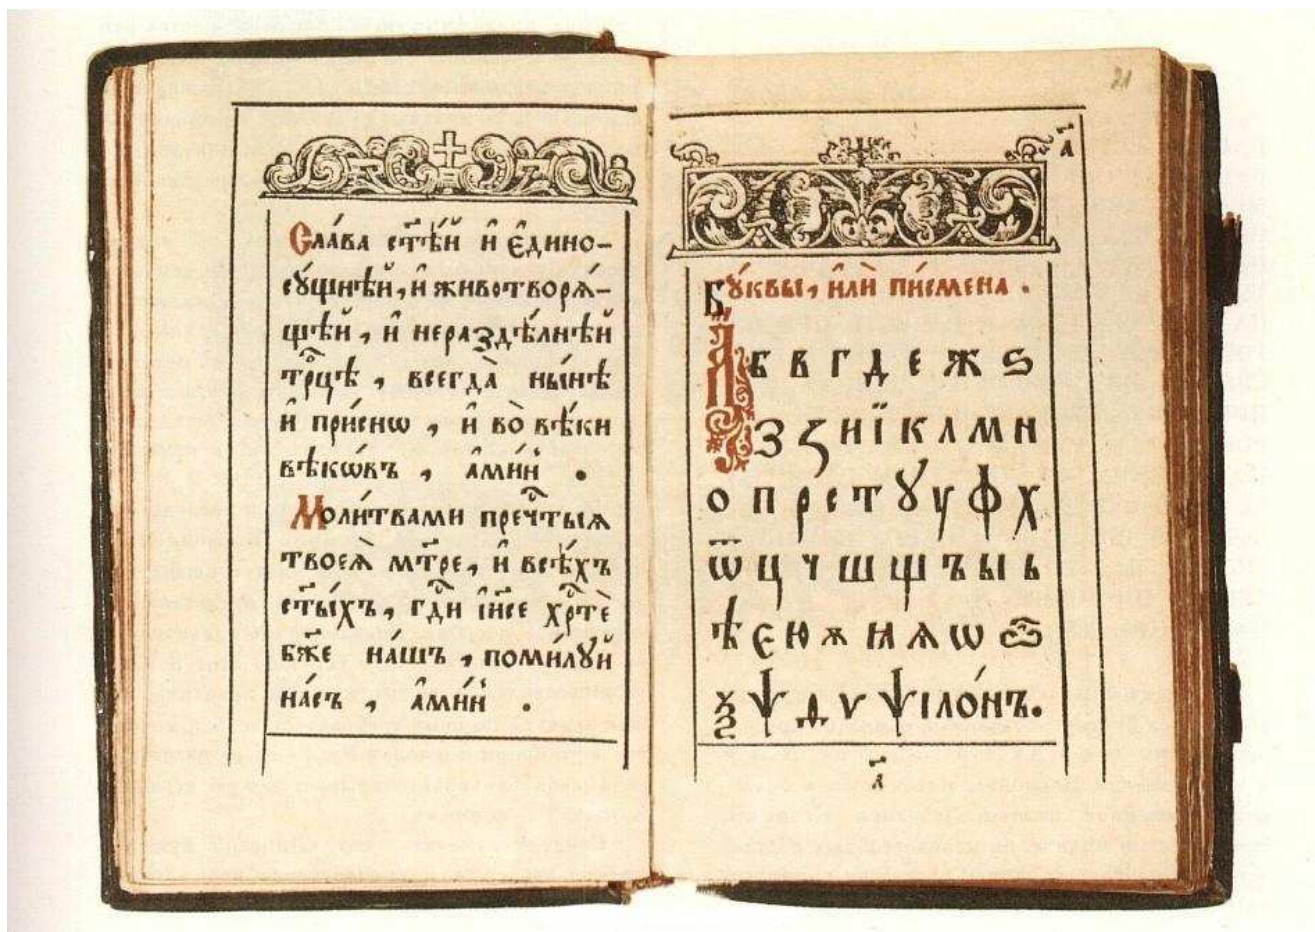 Сла́ва ст҃ѣ́й и҆ є҆дино-
сꙋ́щнѣй, и҆ животворѧ́-
щѣй, и҆ нераздѣ́лнѣй
трⷪ҇цѣ, всегда̀ ны́нѣ
и҆ при́снѡ, и҆ во̀ вѣ́ки
вѣкѡ́въ, а҆ми́нь.
Моли́твами преч҇тыѧ
твоеѧ̀ мт҃ре, и҆ всѣ́хъ
ст҃ы́хъ, гдⷭ҇и і҆и҃се хрⷭ҇тѐ
бж҃е на́шъ, поми́лꙋй
на́съ, а҆ми́нь.
21
а҃
Бꙋ́квы, и҆лѝ пи́смена.
А б в г д е ж ѕ
з ꙁ и ї к л м н
о п р с т ꙋ у ф х
ѿ ц ч ш щ ъ ы ь
ѣ є ю ѫ ꙗ ѧ ѡ ѽ
ѯ ѱ ѳ ѵ ѱїло́нъ.
а҃